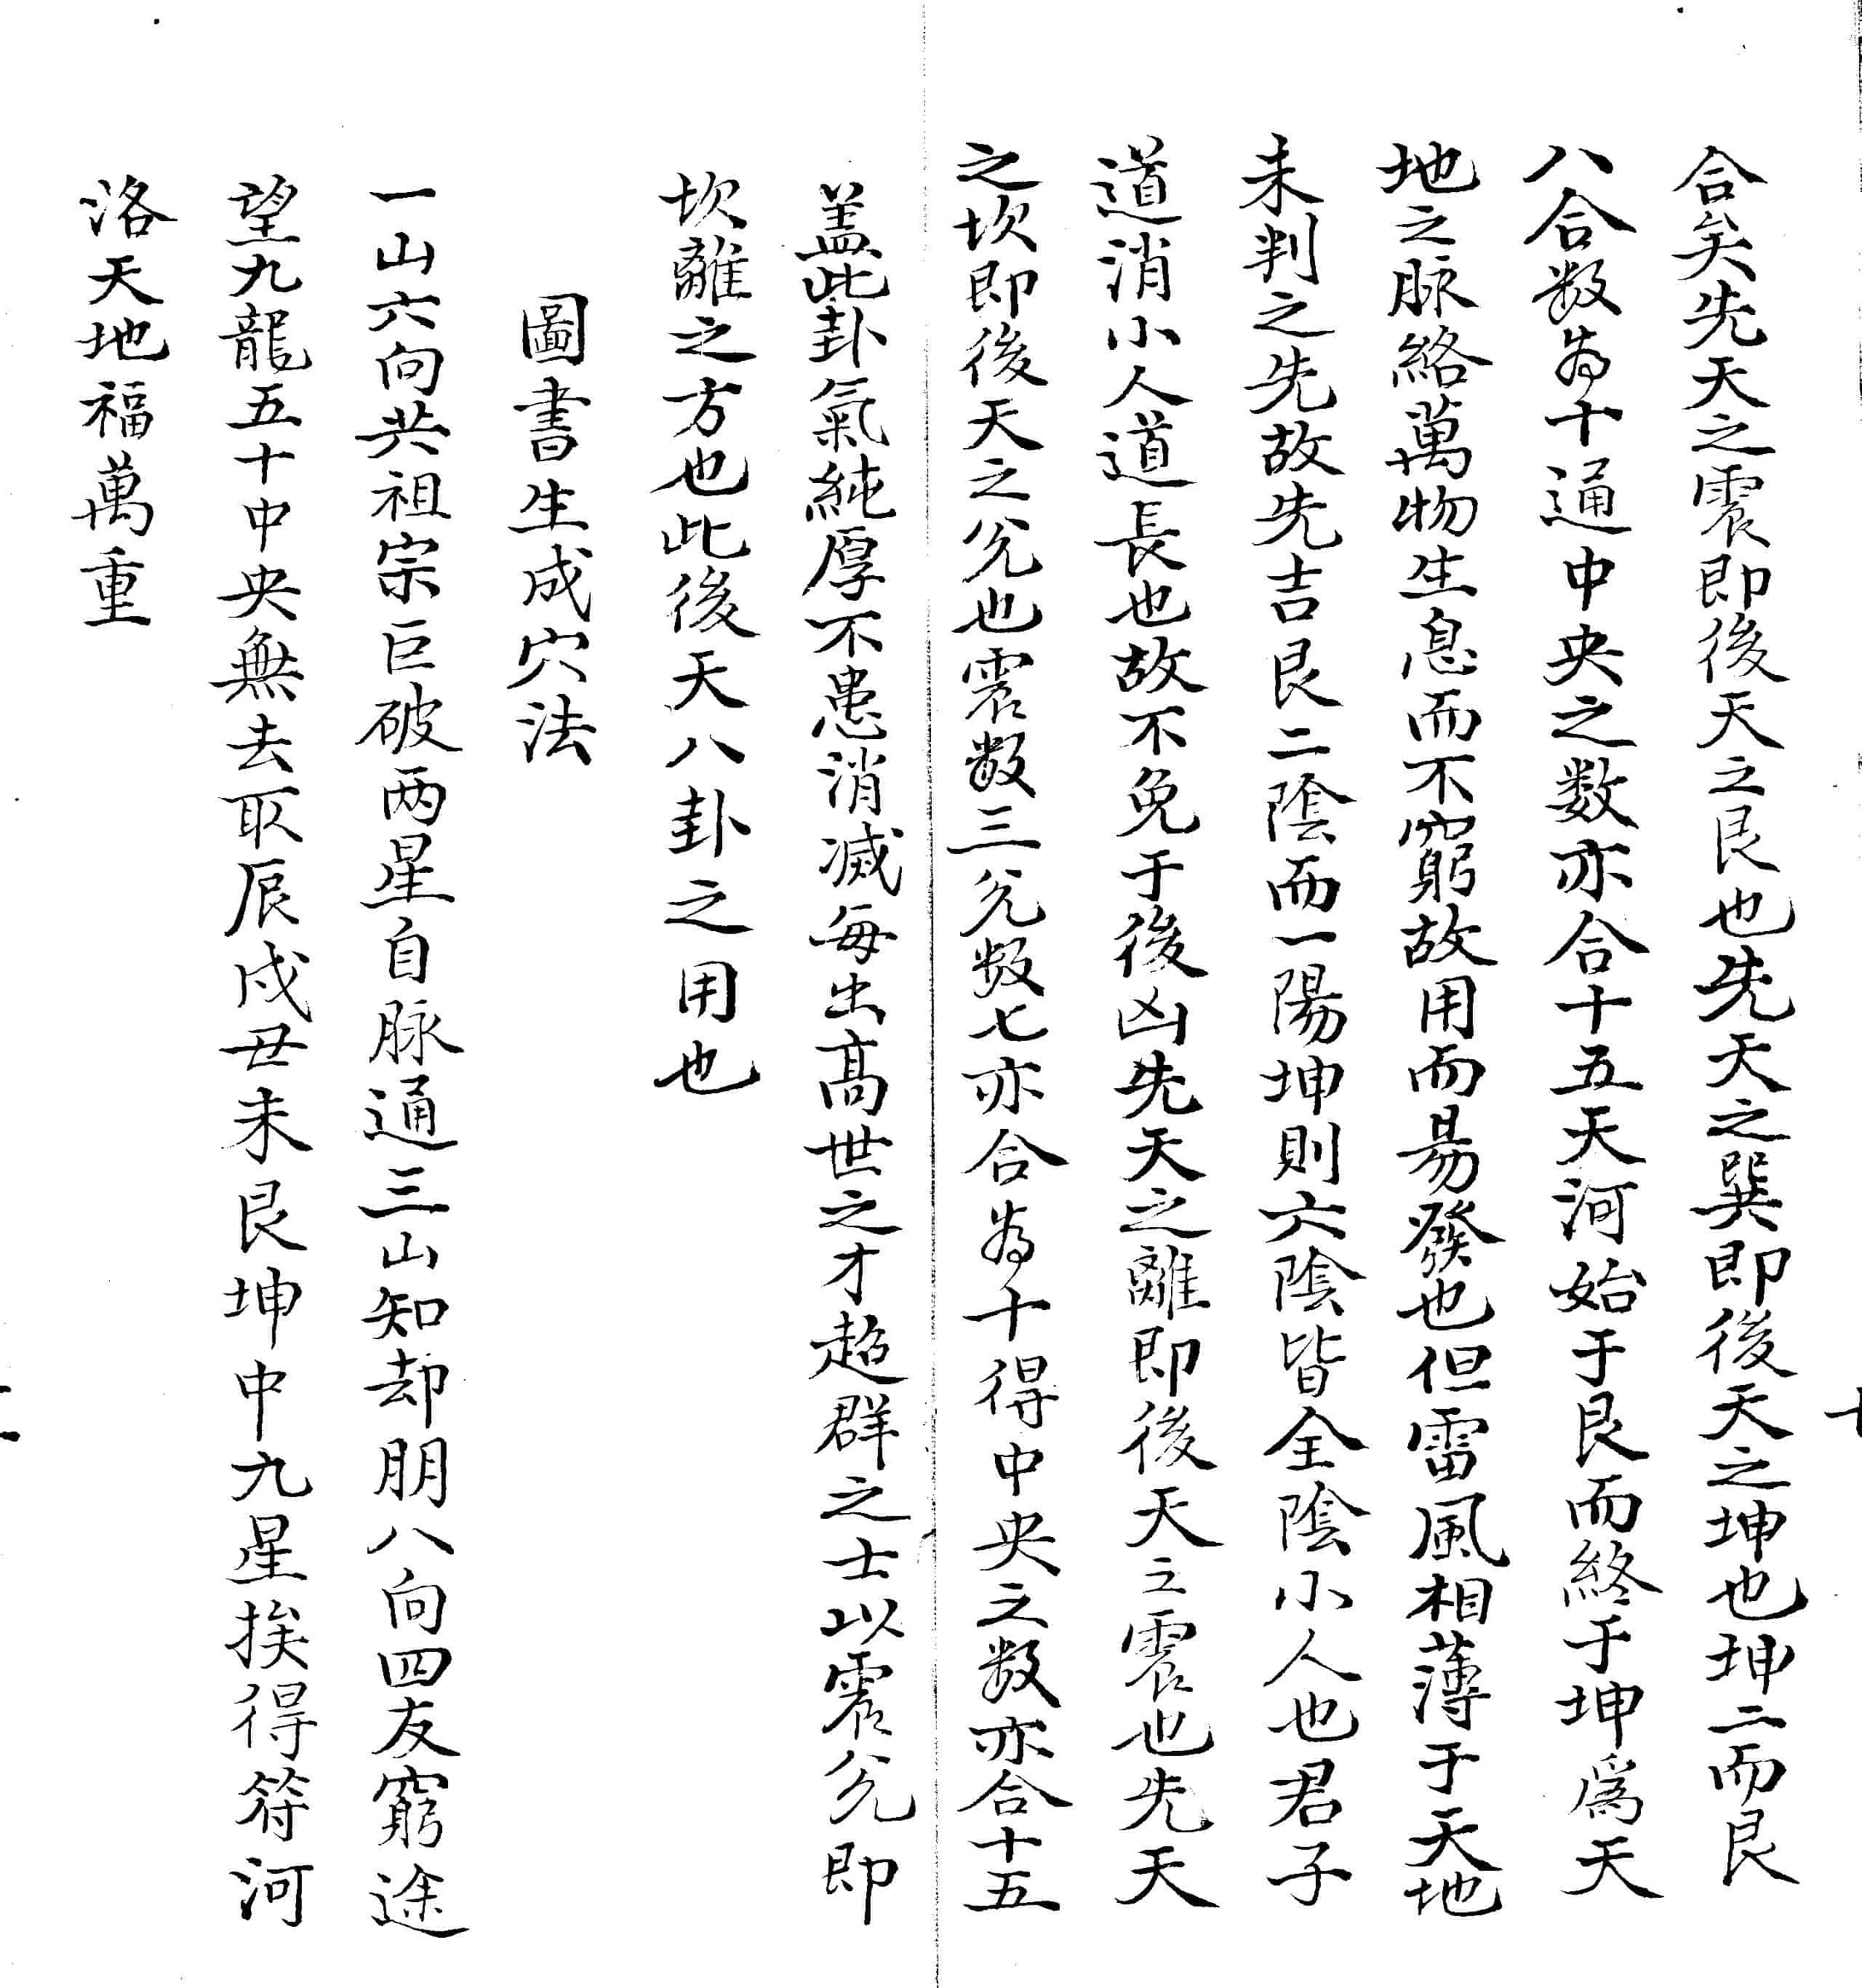 合矣先天之震即後天之艮也先天之巽即後天之坤也坤二而艮
八合数為十通中央之数亦合十五天河始于艮而終于坤為天
地之脉絡萬物生息而不窮故用而易發也但雷風相薄于天地
未判之先故先吉艮二陰而一陽坤則六陰皆全陰小人也君子
道消小人道長也故不免于後凶先天之離即後天之震也先天
之坎即後天之兊也震数三兊数七亦合為十得中央之数亦合十五
盖此卦氣純厚不患消滅每出高世之才超群之士以震兊即
坎離之方也此後天八卦之用也
圖書生成穴法
一山六向共祖宗巨破两星自脉通三山知却朋八向四友窮途
望九龍五十中央無去取辰戌丑未艮坤中九星挨得符河
洛天地福萬重